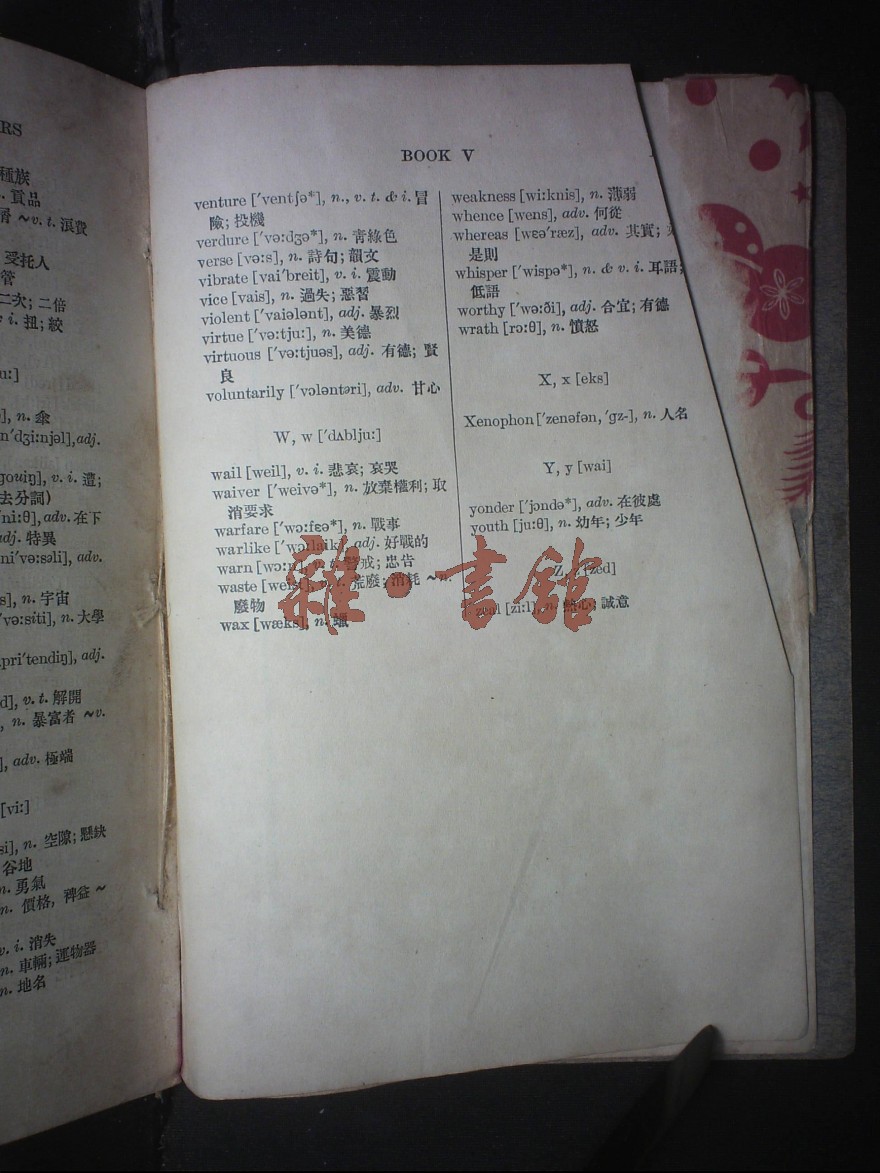 RS
種族
貢品
~v. t. 浪費
受托人
管
二次; 二倍
i. 扭; 絞
u:]
], n. 傘
n'dʒi:njəl], adj.
ɡouiŋ], v. i. 遭;
去分詞)
'ni:θ], adv. 在下
adj. 特異
ni'və:səli], adv.
s], n. 宇宙
'və:siti], n. 大學
pri'tendiŋ], adj.
d], v. t. 解開
, n. 暴富者 ~v.
], adv. 極端
[vi:]
si], n. 空隙; 懸缺
谷地
n. 勇氣
n. 價格, 裨益 ~
v. i. 消失
n. 車輛; 運物器
n. 地名
BOOK V
venture ['ventʃə*], n., v. t. & i. 冒
險; 投機
verdure ['və:dʒə*], n. 靑綠色
verse [və:s], n. 詩句; 韻文
vibrate [vai'breit], v. i. 震動
vice [vais], n. 過失; 惡習
violent ['vaiələnt], adj. 暴烈
virtue ['və:tju:], n. 美德
virtuous ['və:tjuəs], adj. 有德; 賢
良
voluntarily ['vɔləntəri], adv. 甘心
W, w ['dʌblju:]
wail [weil], v. i. 悲哀; 哀哭
waiver ['weivə*], n. 放棄權利; 取
消要求
warfare ['wɔ:fɛə*], n. 戰事
warlike ['wɔ:laik], adj. 好戰的
warn [wɔ:n], 警戒; 忠告
waste [weist], 荒廢; 消耗 ~n.
廢物
wax [wæks], n. 蠟
weakness [wi:knis], n. 薄弱
whence [wens], adv. 何從
whereas [wɛə'ræz], adv. 其實;
是則
whisper ['wispə*], n. & v. i. 耳語;
低語
worthy ['wə:ði], adj. 合宜; 有德
wrath [rɔ:θ], n. 憤怒
X, x [eks]
Xenophon ['zenəfən, 'ɡz-], n. 人名
Y, y [wai]
yonder ['jɔndə*], adv. 在彼處
youth [ju:θ], n. 幼年; 少年
Z, [zed]
zeal [zi:l], n. 熱心; 誠意
雜·書館